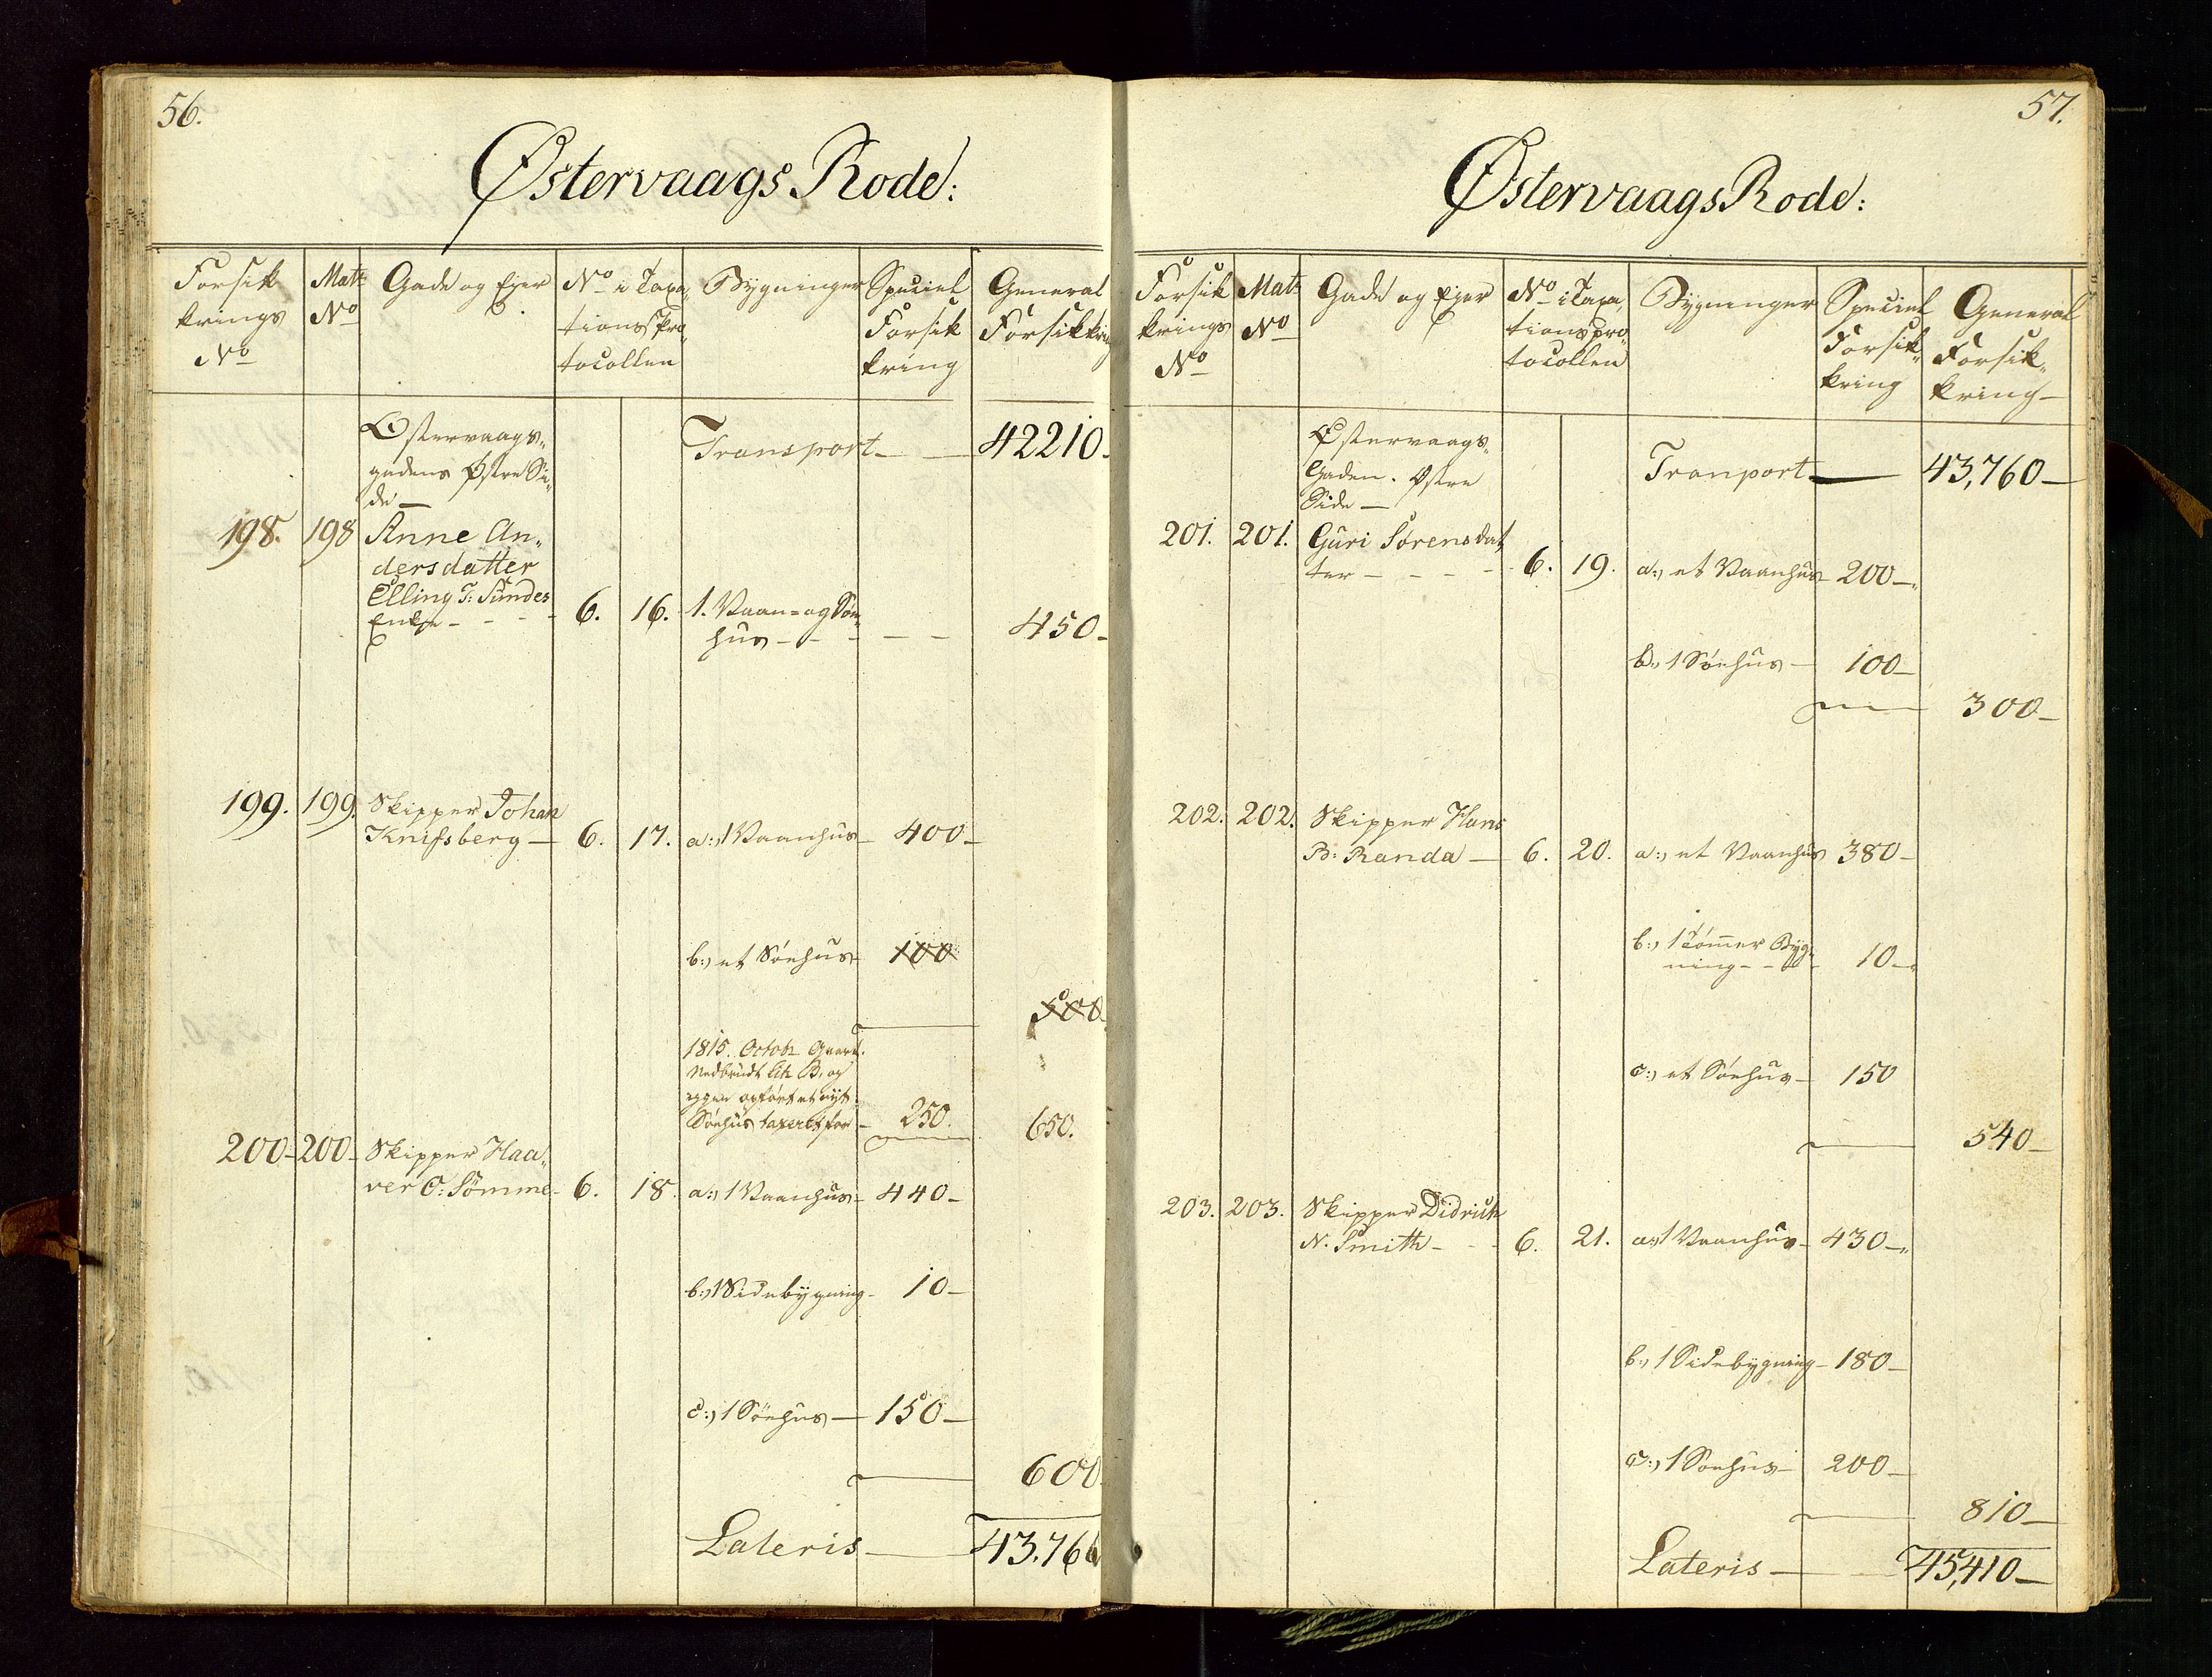 56.
Østervaags Rode:
Forsik
krings
No
Mat:
No
Gade og Ejer
No i Taxa,,
tions Pro,,
tocollen
Bygninger
Speciel
Forsik
kring
General
Forsikkring
Østervaags,,
gadens Østre Si,,
de —
Transport — — 42210.
198. 198 Anne An,,
dersdatter
Elling T: Sundes
Enke - - - - 6. 16. 1. Vaan= og Søe,,
hus - - - — — 450-
199. 199. Skipper Johan
Knifsberg — 6. 17. a:, 1 Vaanhus - 400-
b:, et Söehus - 100
500-
1815. Octob: Qvart.
Nedbrudt Litr B. og
igien opført et nyt
Söehus taxeret for - 250. 650.
200- 200- Skipper Haa,,
ver C: Sömme - 6. 18. a:, 1 Vaanhus - 440-
b:, 1 Sidebygning - 10-
c:, 1 Söehus — 150-
600
Lateris — 43.760
57.
Østervaags Rode:
Forsik
krings
No
Mat:
No
Gade og Ejer
No i Taxa,,
tions pro,,
tocollen
Bygninger
Speciel
Forsik,,
kring
General
Forsik,,
kring —
Østervaags,,
Gaden. Østre
Side —
Tranport — 43,760 —
201. 201. Guri Sörensdat,,
ter - - - - 6. 19. a:, et Vaanhus 200 —
b:, 1 Söehus — 100 —
300 —
202. 202. Skipper Hans
B: Randa — 6. 20. a:, et Vaanhus 380 —
b:, 1 Tömmer Byg,,
ning - - - 10 —
c:, et Söehus - 150
540 —
203. 203. Skipper Didrich
N. Smith - - - 6. 21. a:, 1 Vaanhus - 430 —
b:, 1 Sidebygning - 180 —
c:, 1 Söehus — 200 —
810 —
Lateris — 45,410 —